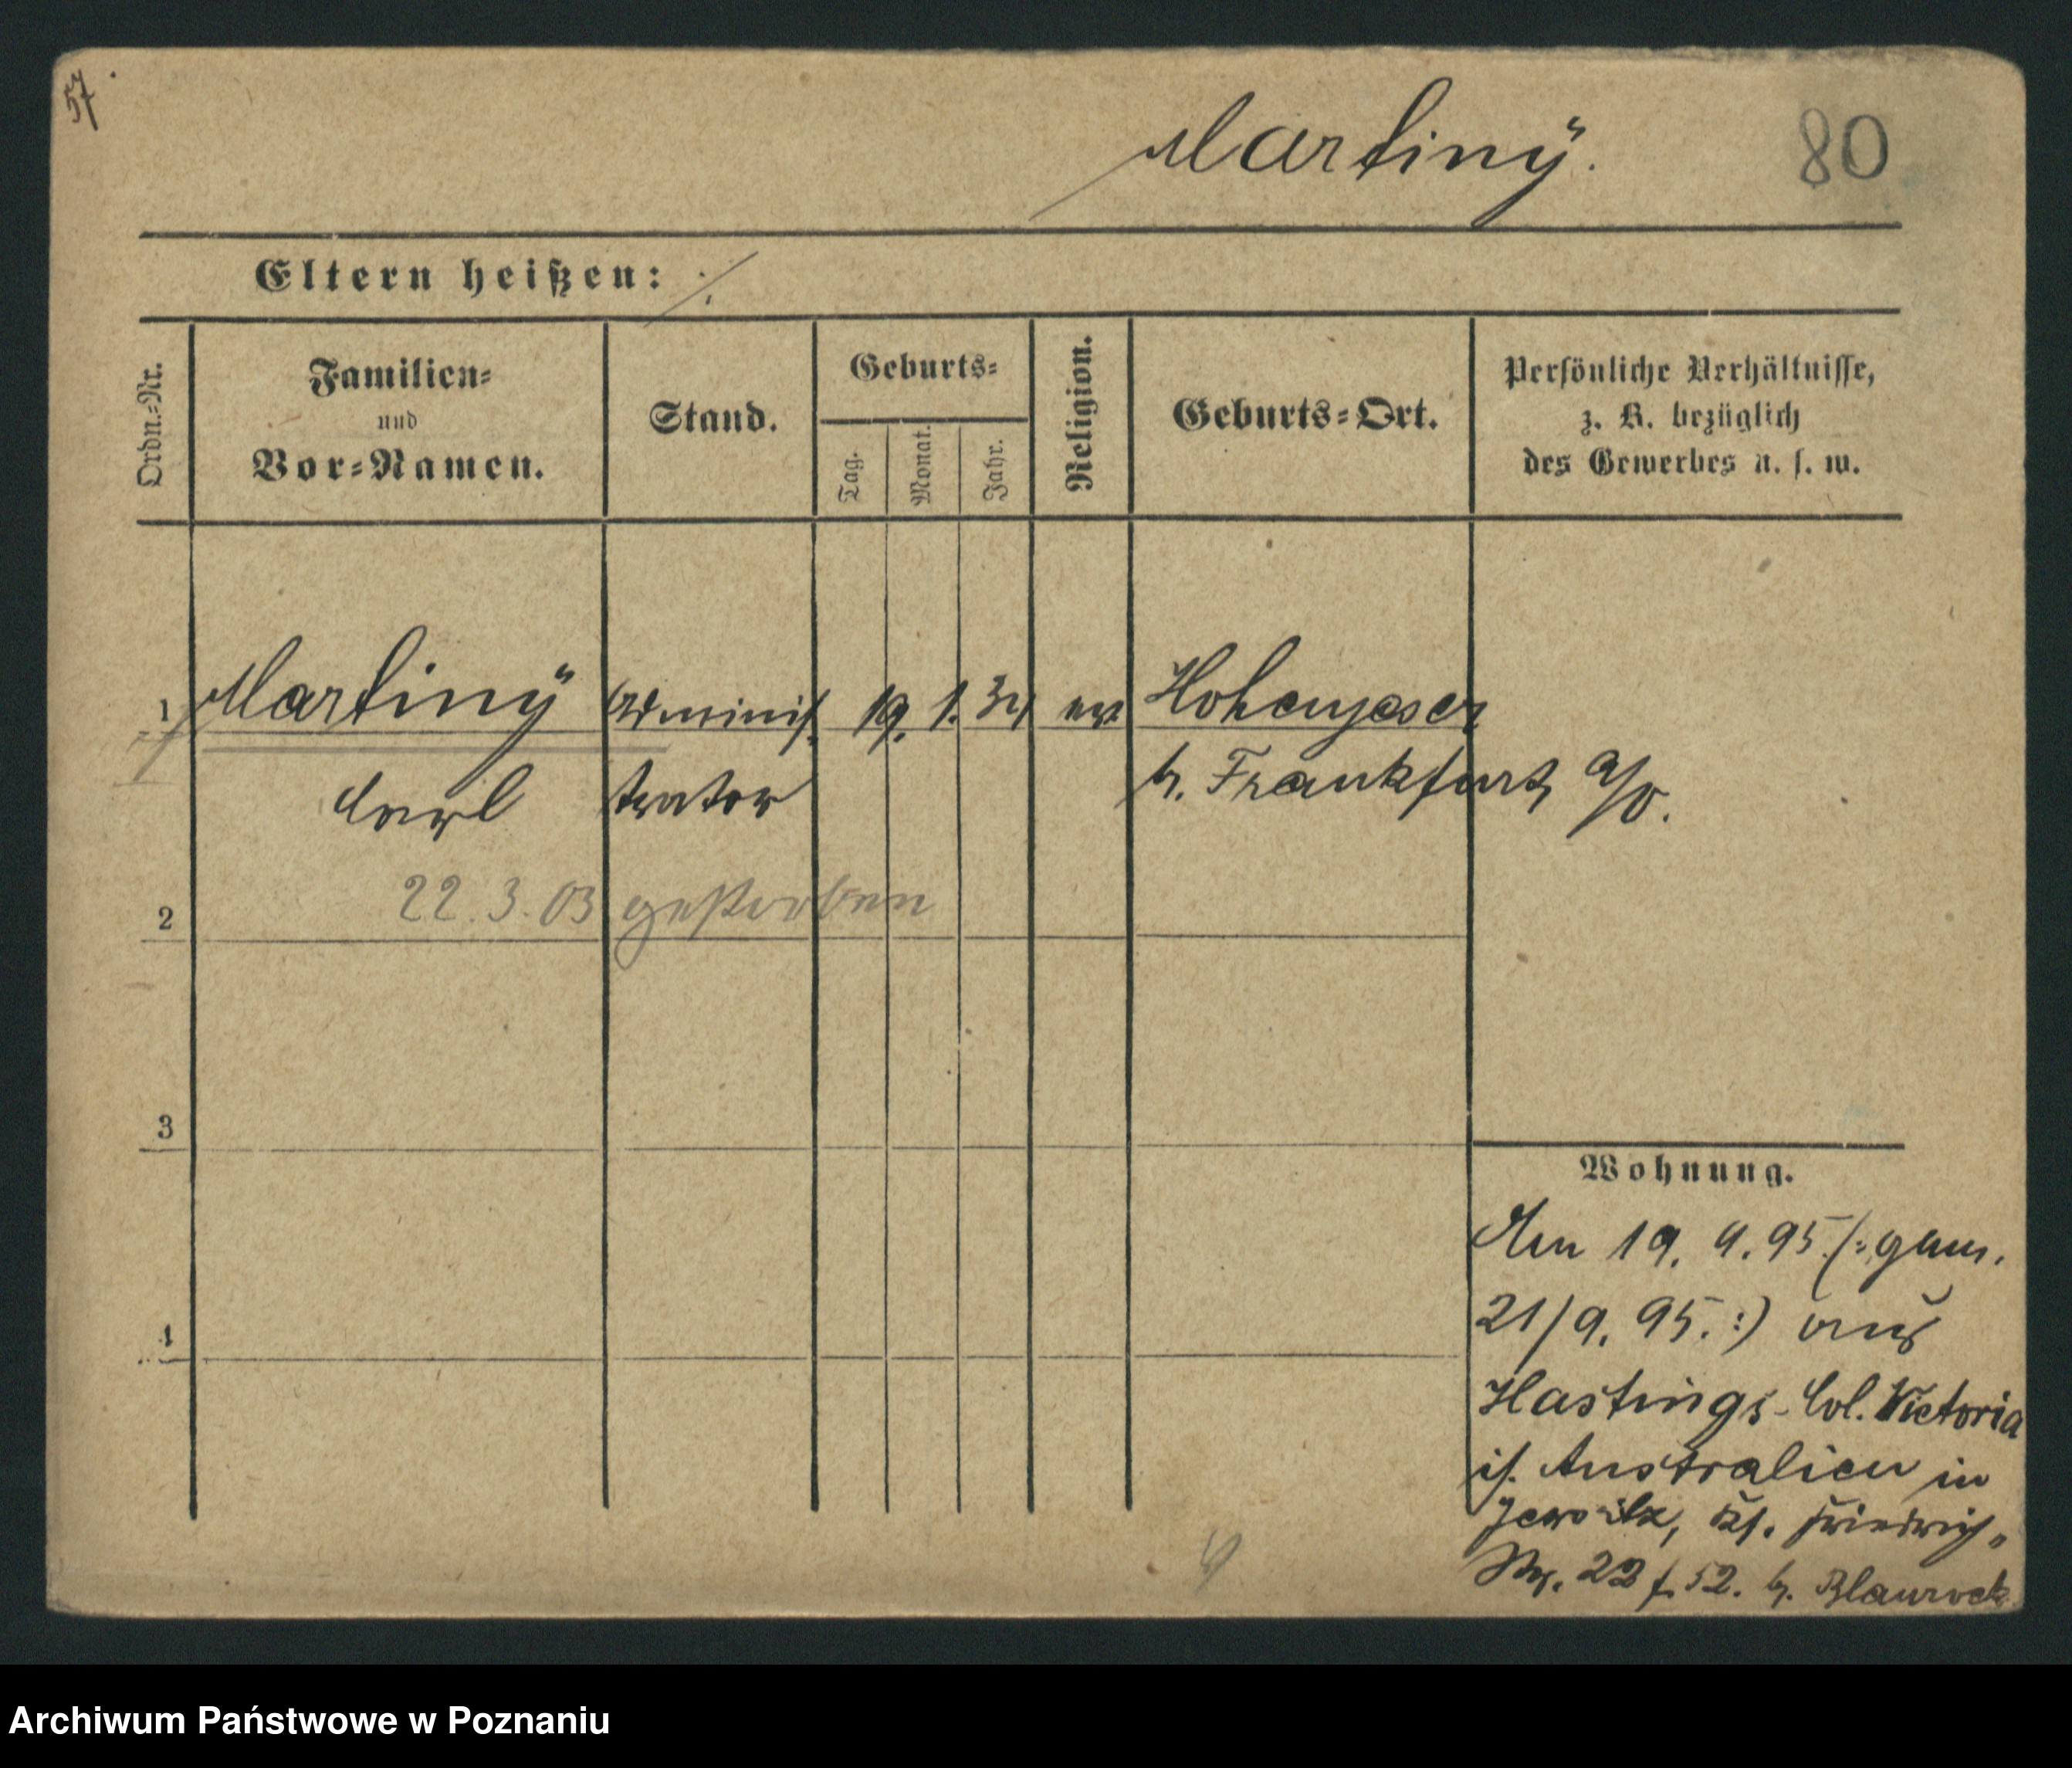 57
Martinÿ.
80
Eltern heißen: ./.
Ordn.=Nr.
Familien=
und
Vor=Namen.
Stand.
Geburts=
Tag.
Monat.
Jahr.
Religion.
Geburts=Ort.
Persönliche Verhältnisse,
z. B. bezüglich
des Gewerbes u. s. w.
1 Martinÿ Adminis= 19. 1. 34 ev. Hohenjeser
Carl trator b. Frankfurt a/O.
22.3.03 gestorben
2
3
4
Wohnung.
Am 19. 9. 95 (: gem.
21/9. 95. :) aus
Hastings-Col. Victoria
i/. Australien in
Jersitz, Friedrich=
Str. 22 f. 52. b. Blaurock
Archiwum Państwowe w Poznaniu